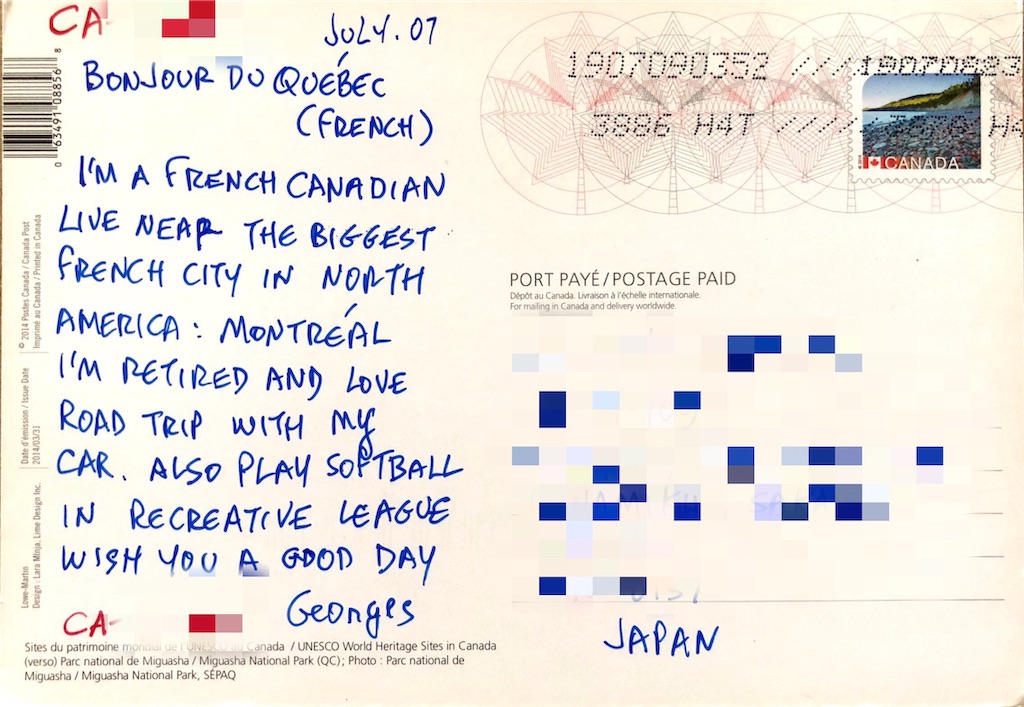 CA-
JULY. 07
BONJOUR DU QUÉBEC
(FRENCH)
I'M A FRENCH CANADIAN
LIVE NEAR THE BIGGEST
FRENCH CITY IN NORTH
AMERICA: MONTRÉAL
I'M RETIRED AND LOVE
ROAD TRIP WITH MY
CAR. ALSO PLAY SOFTBALL
IN RECREATIVE LEAGUE
WISH YOU A GOOD DAY
Georges
CA-
Sites du patrimoine mondial de l'UNESCO au Canada / UNESCO World Heritage Sites in Canada
(verso) Parc national de Miguasha / Miguasha National Park (QC); Photo : Parc national de
Miguasha / Miguasha National Park, SÉPAQ
0 63491 08856 8
© 2014 Postes Canada / Canada Post
Imprimé au Canada / Printed in Canada
Date d'émission / Issue Date
2014/03/31
Lowe-Martin
Design : Lara Minja, Lime Design Inc.
1907080352 ////
3886 H4T /////
CANADA
PORT PAYÉ/POSTAGE PAID
Dépôt au Canada. Livraison à l'échelle internationale.
For mailing in Canada and delivery worldwide.
JAPAN